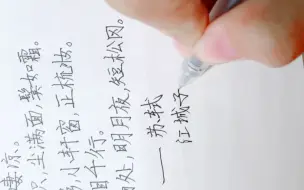 凄凉。
尘满面，鬓如霜。
小轩窗，正梳妆。
千行。
处，明月夜，短松冈。
——苏轼
江城子